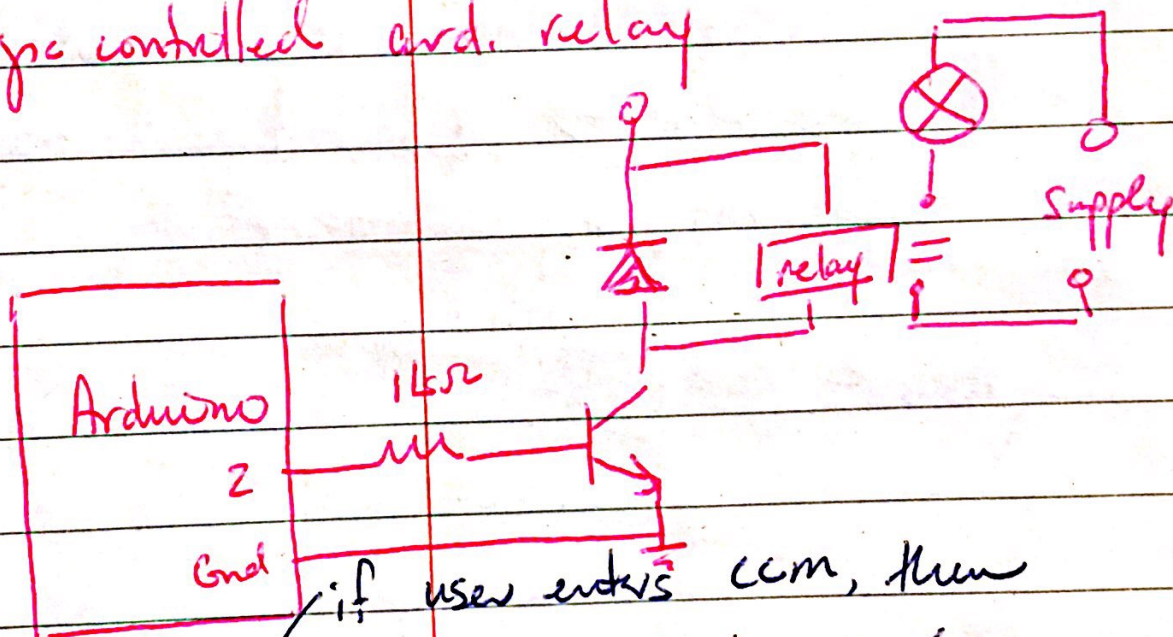 controlled ard. relay
supply
relay
1kΩ
Arduino
2
Gnd
if user enters ccm, then